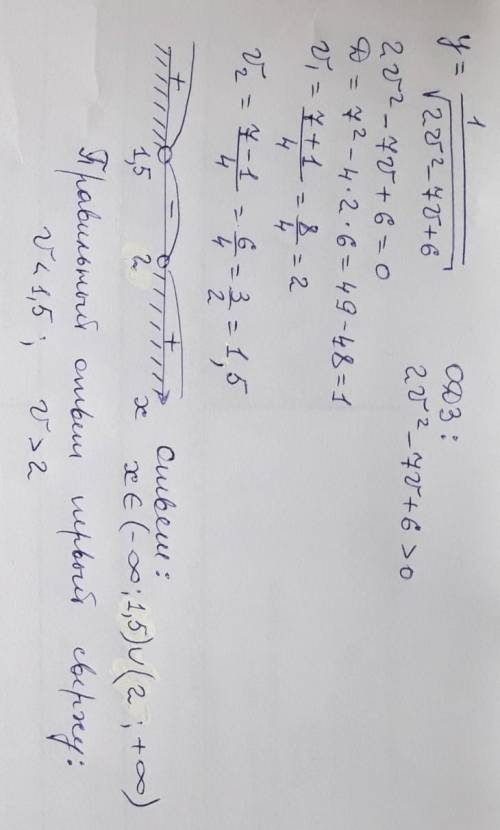 y = 1/√(2v² - 7v + 6)
ОДЗ:
2v² - 7v + 6 > 0
2v² - 7v + 6 = 0
D = 7² - 4·2·6 = 49 - 48 = 1
v₁ = (7+1)/4 = 8/4 = 2
v₂ = (7-1)/4 = 6/4 = 3/2 = 1,5
+ - +
1,5 2 x
Ответ:
x ∈ (-∞; 1,5) ∪ (2; +∞)
Правильный ответ первый сверху:
v < 1,5; v > 2